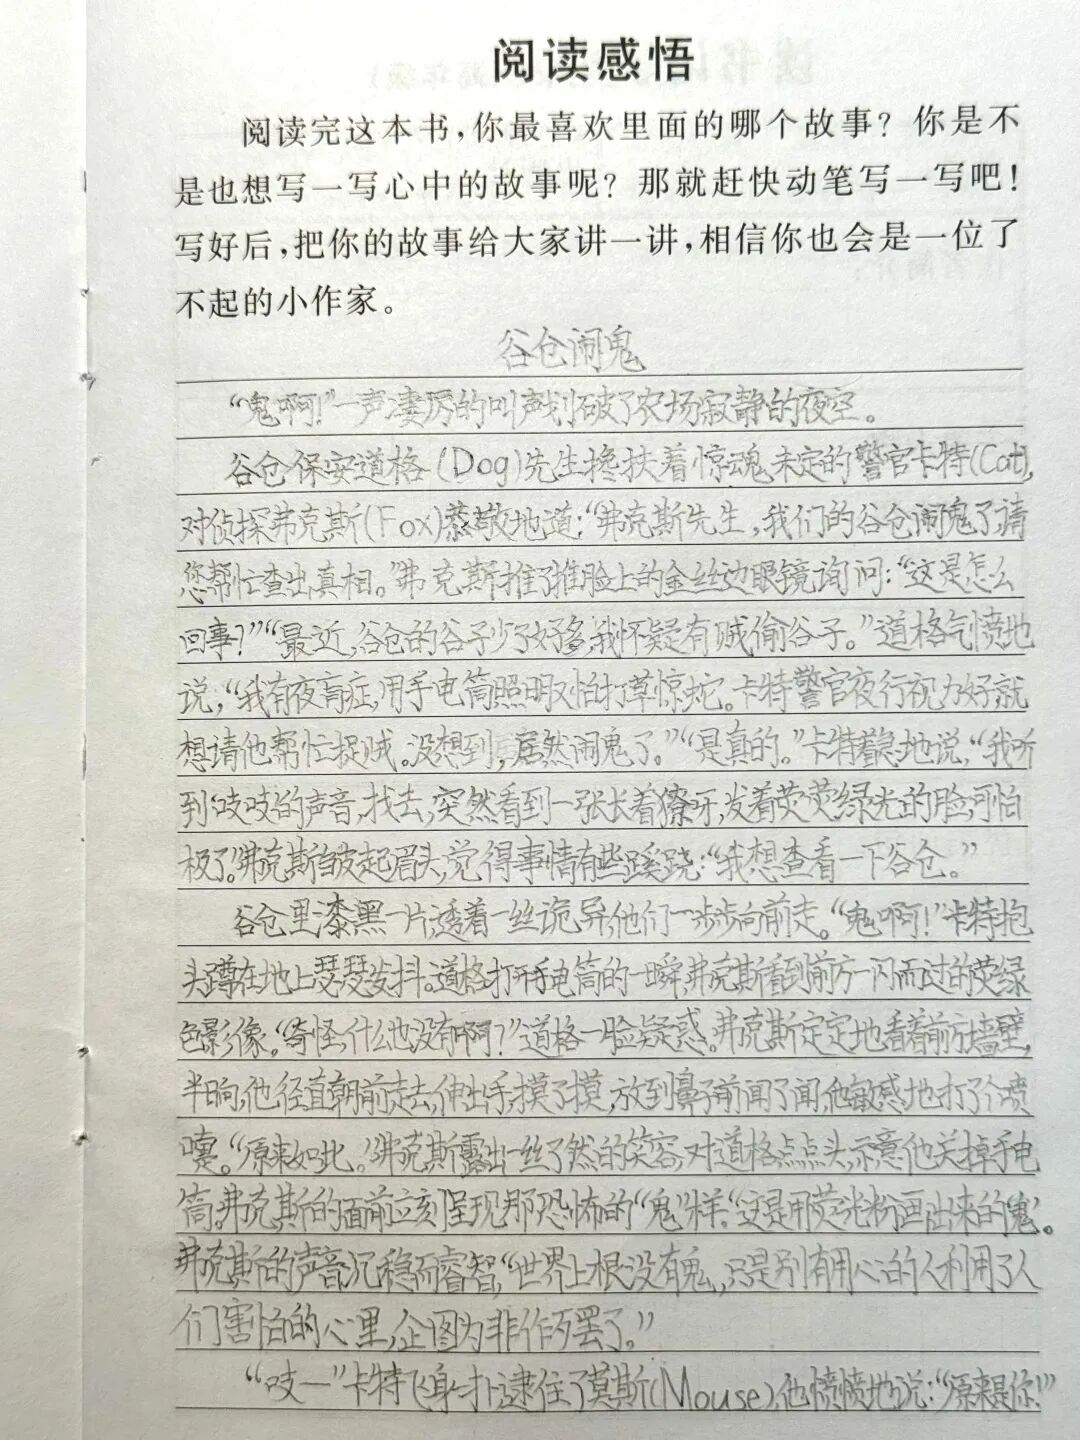 阅读感悟
阅读完这本书，你最喜欢里面的哪个故事？你是不
是也想写一写心中的故事呢？那就赶快动笔写一写吧！
写好后，把你的故事给大家讲一讲，相信你也会是一位了
不起的小作家。
谷仓闹鬼
“鬼啊！”一声凄厉的叫声划破了农场寂静的夜空。
谷仓保安道格(Dog)先生搀扶着惊魂未定的警官卡特(Cat)，
对侦探弗克斯(Fox)恭敬地道：“弗克斯先生，我们的谷仓闹鬼了请
您帮忙查出真相。”弗克斯推了推脸上的金丝边眼镜询问：“这是怎么
回事？”“最近，谷仓的谷子少了好多，我怀疑有贼偷谷子。”道格气愤地
说，“我有夜盲症，用手电筒照明又怕打草惊蛇。卡特警官夜行视力好，就
想请他帮忙捉贼。没想到，居然闹鬼了。”“是真的。”卡特着急地说，“我听
到‘吱吱’的声音，找去，突然看到一张长着獠牙，发着荧荧绿光的脸，可怕
极了。”弗克斯皱起眉头，觉得事情有些蹊跷：“我想查看一下谷仓。”
谷仓里漆黑一片，透着一丝诡异，他们一步步向前走。“鬼啊！”卡特抱
头蹲在地上瑟瑟发抖。道格打开手电筒的一瞬，弗克斯看到前方一闪而过的荧绿
色影像。“奇怪，什么也没有啊？”道格一脸疑惑。弗克斯定定地看着前方墙壁，
半晌，他径直朝前走去，伸出手，摸了摸，放到鼻子前闻了闻，他敏感地打了个喷
嚏。“原来如此。”弗克斯露出一丝了然的笑容，对道格点点头，示意他关掉手电
筒，弗克斯的面前立刻呈现那恐怖的“鬼”样。“这是用荧光粉画出来的‘鬼’。”
弗克斯的声音沉稳而睿智，“世界上根没有鬼，只是别有用心的人利用了人
们害怕的心里，企图为非作歹罢了。”
“吱—”卡特飞身一扑，逮住了莫斯(Mouse)，他愤愤地说：“原来是你！”